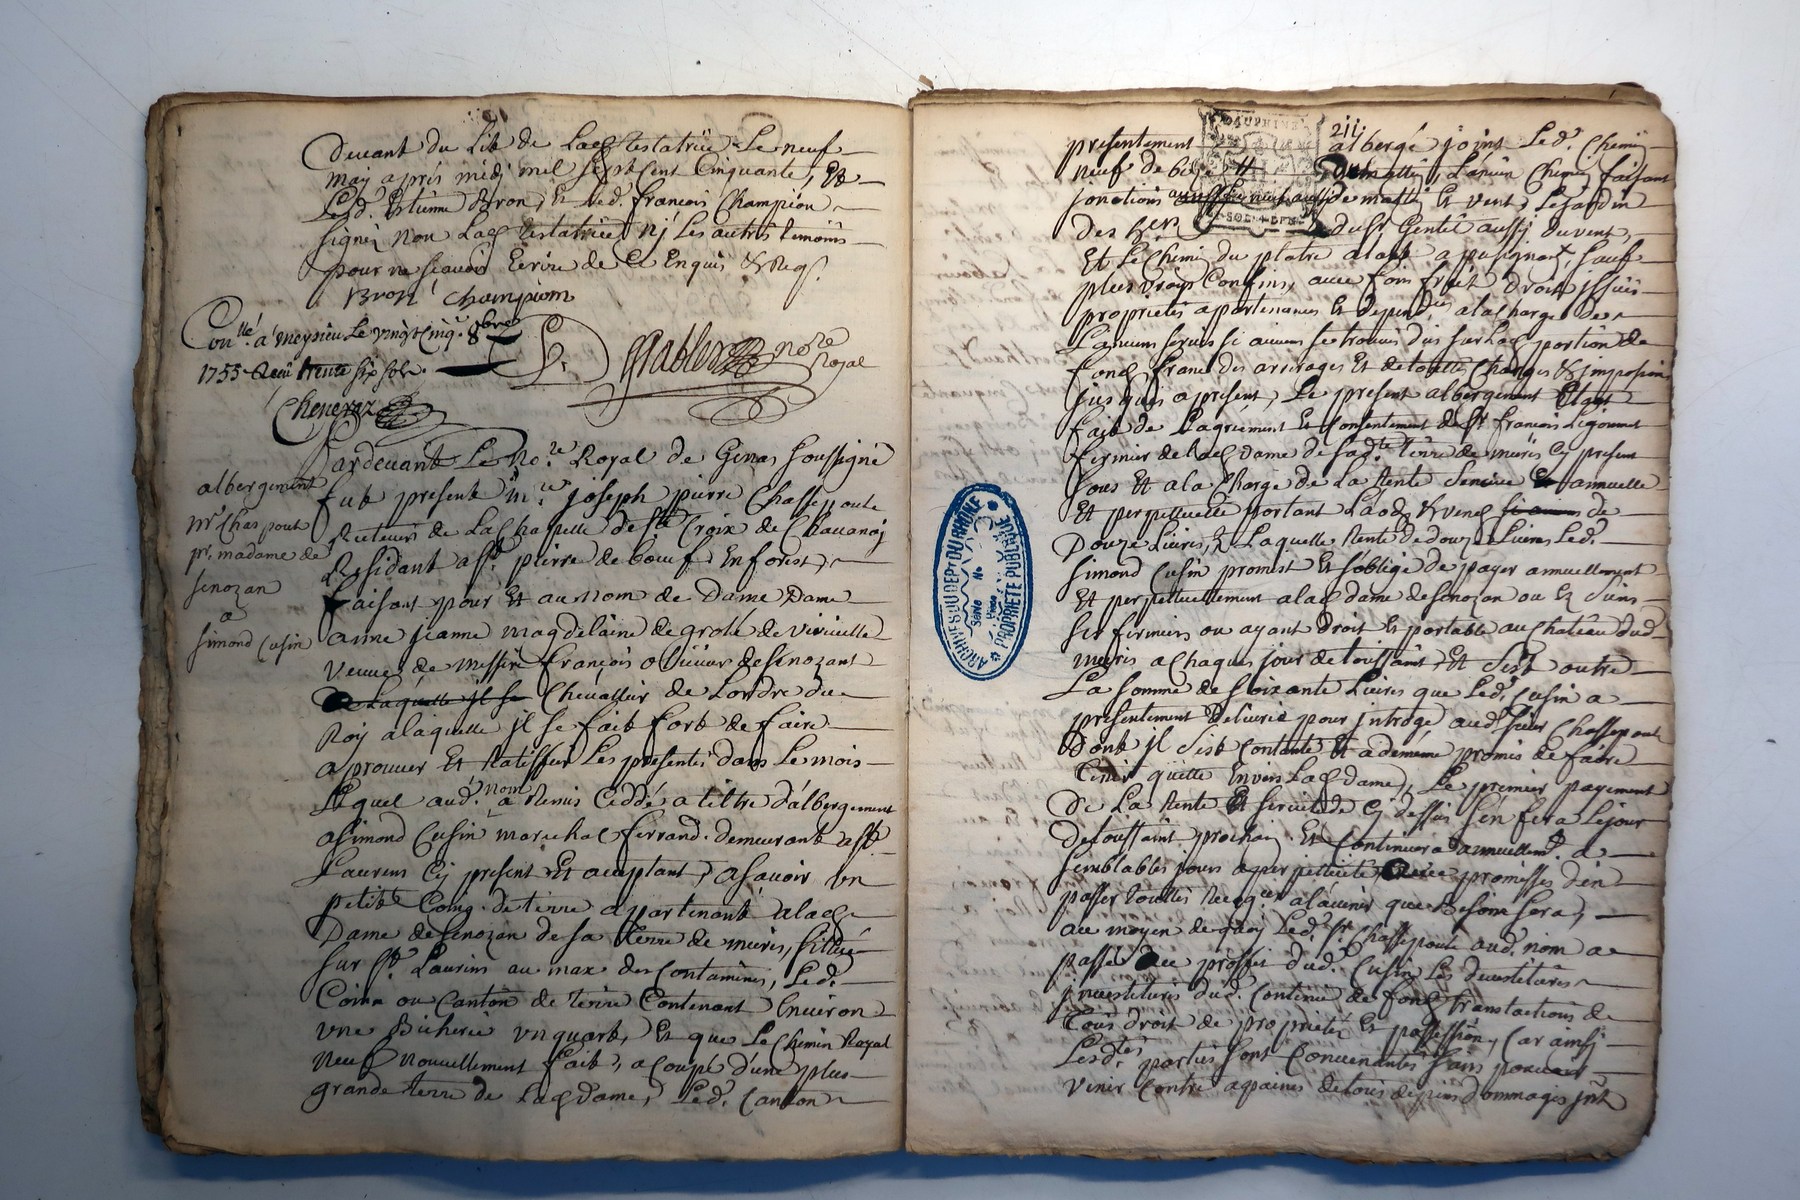 devant du lit de lad testatrice le neuf
may après midj mil sept cent Cinquante, Et
Led. Estienne Bron, Et Led. françois Champion
signé non Lad testatrice nj Les autres temoins
pour ne sçavoir Ecrire de Ce Enquis & Req.
Bron Champion
Con.llé a meysieu Le vingt cinq. 8bre
1755 Receu trente six sols.
nore
Royal
Chenevaz
Pardevant Le No.re Royal de Genas soussigné
albergement
mr Chaspout
pr. madame de
senozan
a
simond Cusin
fut present m.re joseph pierre Chassepoute
Recteur de La Chapelle de ste Croix de Chavanaj
Residant a st. pierre de bœuf En forest,
faisant pour Et au nom de Dame Dame
anne jeanne magdelaine de grole de viriville
veuve de messire françois olivier de senozant
Laquelle il se Chevallier de L'ordre du
Roj a laquelle jl se fait fort de faire
aprouver Et Ratiffier Les presentes dans Le mois
Lequel aud. nom a Remis Ceddé a tiltre d'albergement
a Simond Cusin marechal ferrand demeurant a st
Laurens Cy present Et aceptant, a savoir un
petit Coing de terre apartenant a lad
Dame de senozan de sa terre de mûres, sittué
sur st. Laurens au max des Contamines, Led.
Coin ou Canton de terre Contenant Environ
une Bicherée un quart, Et que Le Chemin Royal
neuf nouvellement fait, a coupé d'une plus
grande terre de Lad Dame, Led. Canton
211.
DAUPHINÉ
presentement albergé joint Led. Chemin
neuf de bize Du matin, L'ancien Chemin faisant
jonction de matin Et vent, Le jardin
des her du sr Gentil aussj du vent,
Et Le Chemin du platre a lad a pusignant, sauf
plus vrays Confins, avec foin fruit droit jssues
proprietes apartenances Et depend. a la Charge de
L'ancien servis si aucun se trouve dus sur Lad portion de
fond franc des arrerages Et de toutes Charges & jmpositions
jusques a present, Le present albergement Etant
fait de L'agrément Et Consentement de sr françois Ligonnet
fermier de lad Dame de sad. terre de mures Cy present
sous Et a la Charge de La Rente annuelle
Et perpetuelle portant de
Douze Livres, Laquelle Rente de douze Livres Led.
Simond Cusin promet Et s'oblige de payer annuellement
Et perpetuellement a lad dame de senozan ou Es siens
ses fermiers ou ayant droit Et portable au Château dud.
mures a Chaque jour de toussaint, Et s'est outre
La somme de soixante Livres que Led. Cusin a
presentement delivré pour jntroge aud. sieur Chassepoute
Dont jl s'est Contenté Et a de même promis de faire
tenir quitte Envers Lad Dame, Le premier payement
de La Rente Et Cy dessus s'en fera Le jour
de toussaint prochain Et Continuera annuellem.t a
semblables jours a perpetuité promesses d'en
passer touttes Recog.ces a l'avenir que Besoin sera,
au moyen de quoy Led. sr Chassepoute aud. nom a
passé au proffit dud. Cusin Les devestitures
jnvestitures dud. Contenu de fond translactions de
tous droit de proprieté Et possession, Car ainsj
Lesd.tes parties sont Convenantes sans pouvoir
venir Contre a paines de tous depens Dommages jnt
ARCHIVES DU DEPT DU RHÔNE
PROPRIÉTÉ PUBLIQUE
Série No
Liasse